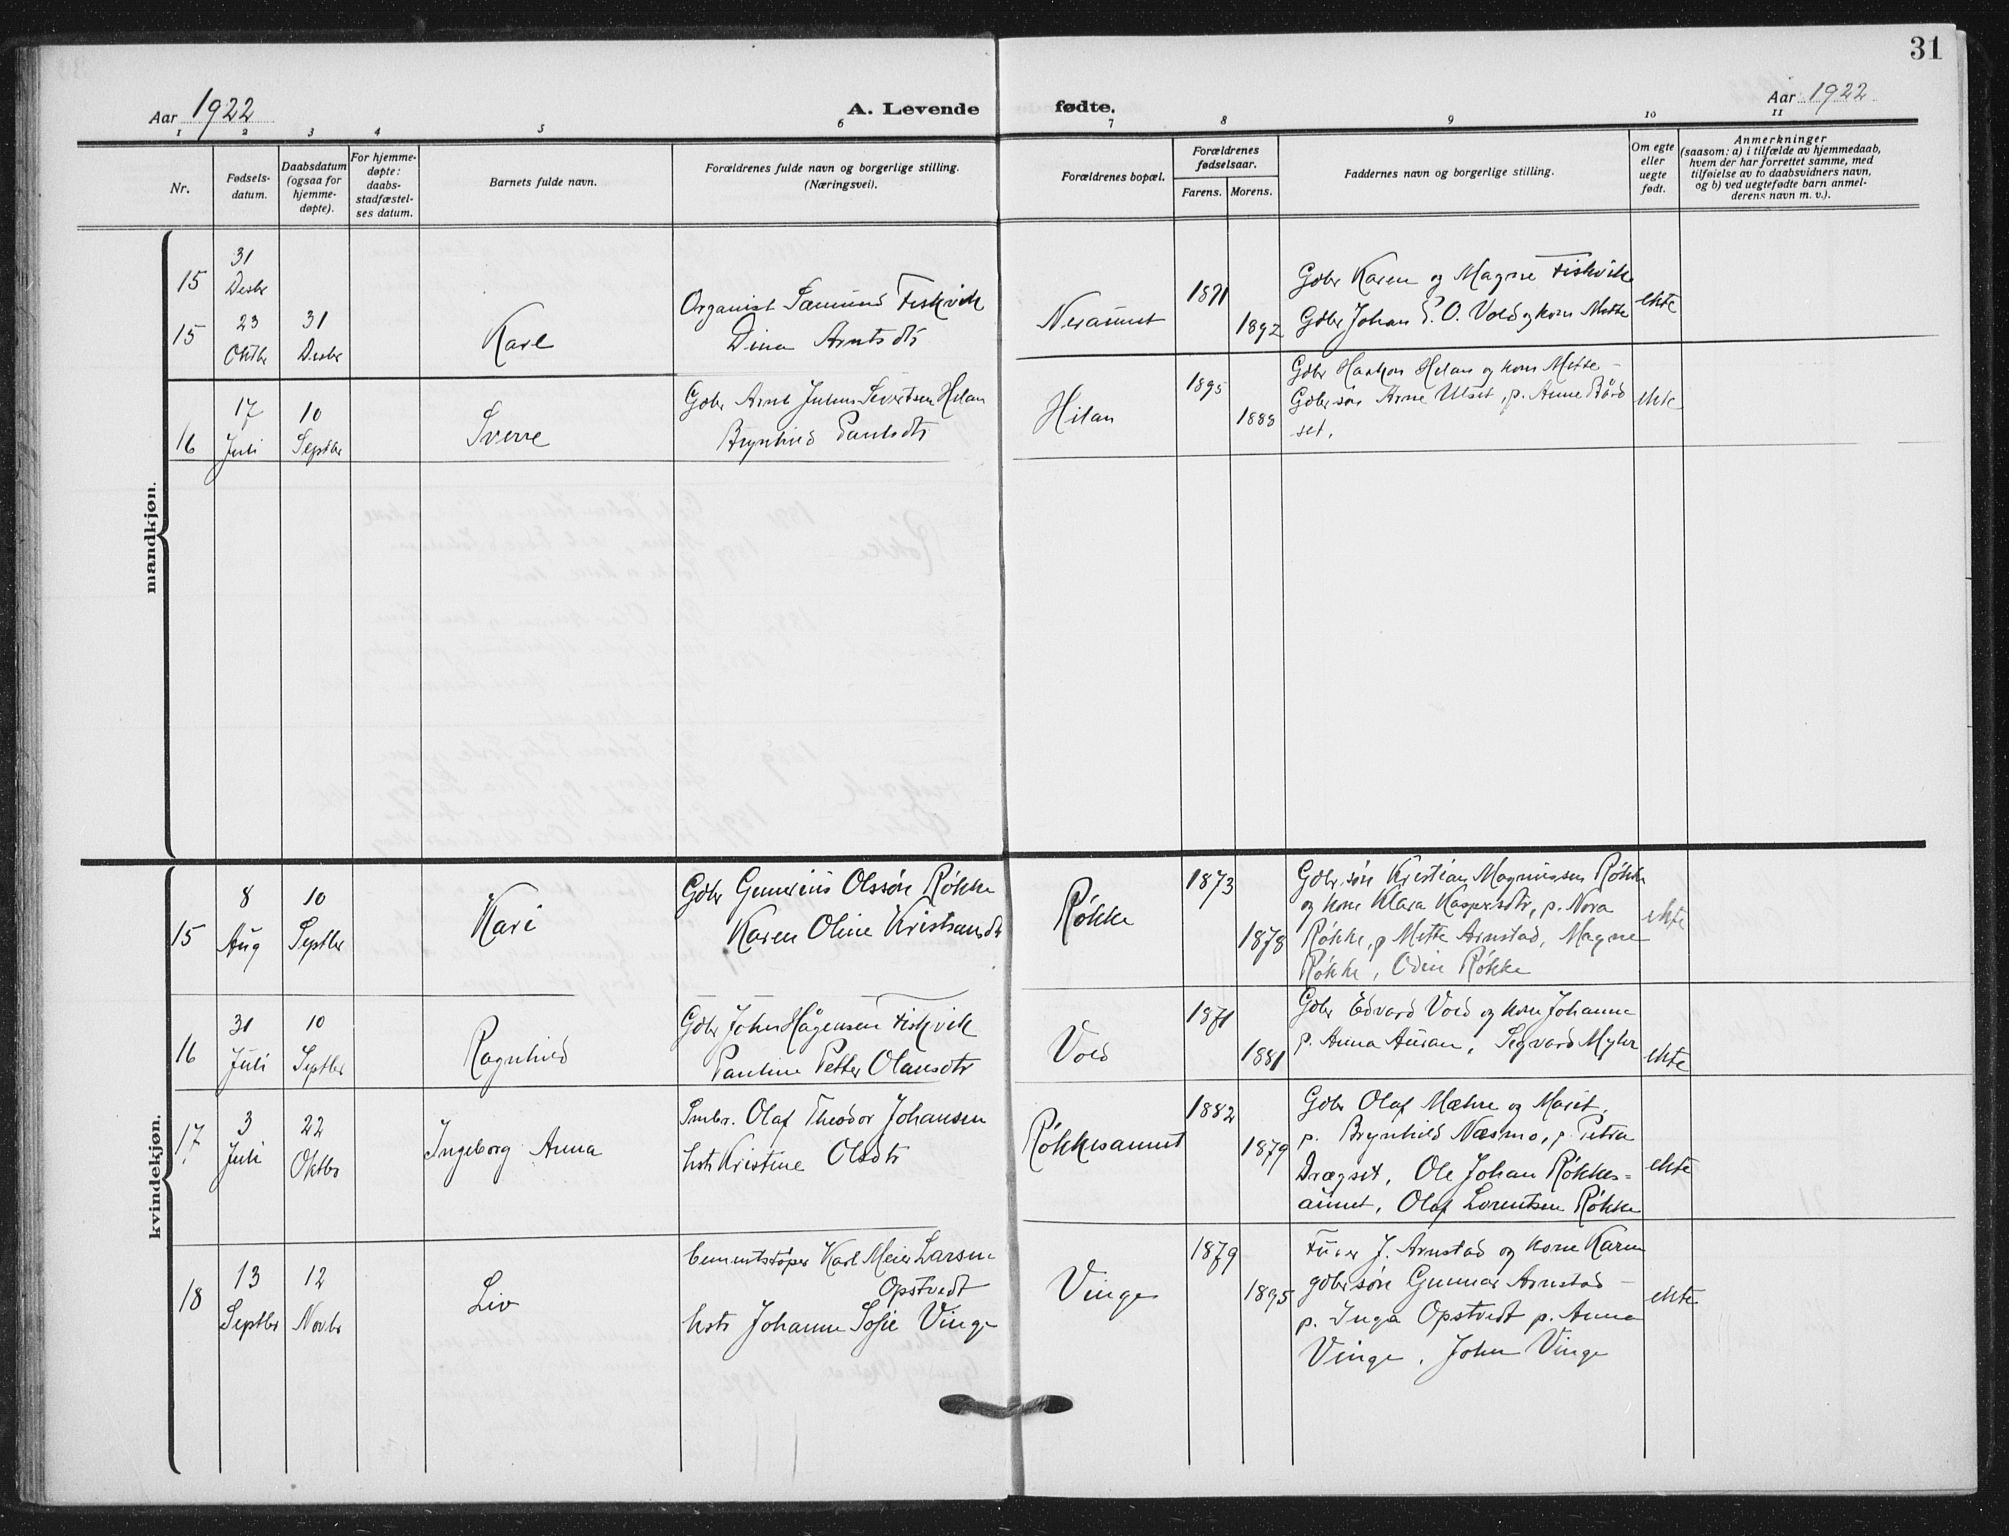 31
Aar 1922
A. Levende
fødte.
Aar 1922
1 2 3 4 5 6 7 8 9 10 11
Nr.
Fødsels-
datum.
Daabsdatum
(ogsaa for
hjemme-
døpte).
For hjemme-
døpte:
daabs-
stadfæstel-
ses datum.
Barnets fulde navn.
Forældrenes fulde navn og borgerlige stilling.
(Næringsvei).
Forældrenes bopæl.
Forældrenes
fødselsaar.
Farens. Morens.
Faddernes navn og borgerlige stilling.
Om egte
eller
uegte
født.
Anmerkninger
(saasom: a) i tilfælde av hjemmedaab,
hvem der har forrettet samme, med
tilføielse av to daabsvidners navn,
og b) ved uegtefødte barn anmel-
derens navn m. v.).
mandkjøn.
15
31
Desbr
15
23
Oktbr
31
Desbr
Karl
Organist Sæmund Fiskvik
Dina Arntsdtr
1871
1892
Gdbr Karen og Magne Fiskvik
Gdbr Johan P. O. Vold og kone Mette
ekte
16
17
Juli
10
Septbr
Sverre
Gdbr Arnt Julius Sivertsen Hilan
Brynhild Paulsdtr
Hilan
1895
1888
Gdbr Haakon Hilan og kone Mette
Gdbr søn Arne Ulset, p. Anne
set.
ekte
kvindekjøn.
15
8
Aug
10
Septbr
Kari
Gdbr Gunerius Olssøn Røkke
Karen Oline Kristiansdtr
Røkke
1873
1878
Gdbr. søn Kristian Magnussen Røkke
og kone Klara Kaspersdtr, p. Nora
Røkke, p Mette Arnstad, Magne
Røkke, Odin Røkke
ekte
16
31
Juli
10
Septbr
Ragnhild
Gdbr John Hågensen Fiskvik
Pauline Petter Olausdtr
Vold
1871
1881
Gdbr Edvard Vold og kone Johanna
p. Anna Auran, Sigvard Myhr
ekte
17
3
Juli
22
Oktbr
Ingeborg Anna
Smbr. Olaf Theodor Johansen
hstr Kristine Olsdtr
Røkkesaunet
1882
1879
Gdbr Olaf Mæhre og Marit,
p. Brynhild Næsmo, p. Petra
Drægset, Ole Johan Røkkes-
aunet, Olaf Lorentsen Røkke
ekte
18
13
Septbr
12
Novbr
Liv
Cementstøper Karl Meier Larsen
Opstvedt
hstr Johanne Sofie Vinge
Vinge
1879
1895
J. Arnstad og kone Karen
gdbr søn Gunnar Arnstad
p. Inga Opstvedt p. Anna
Vinge, John Vinge
ekte